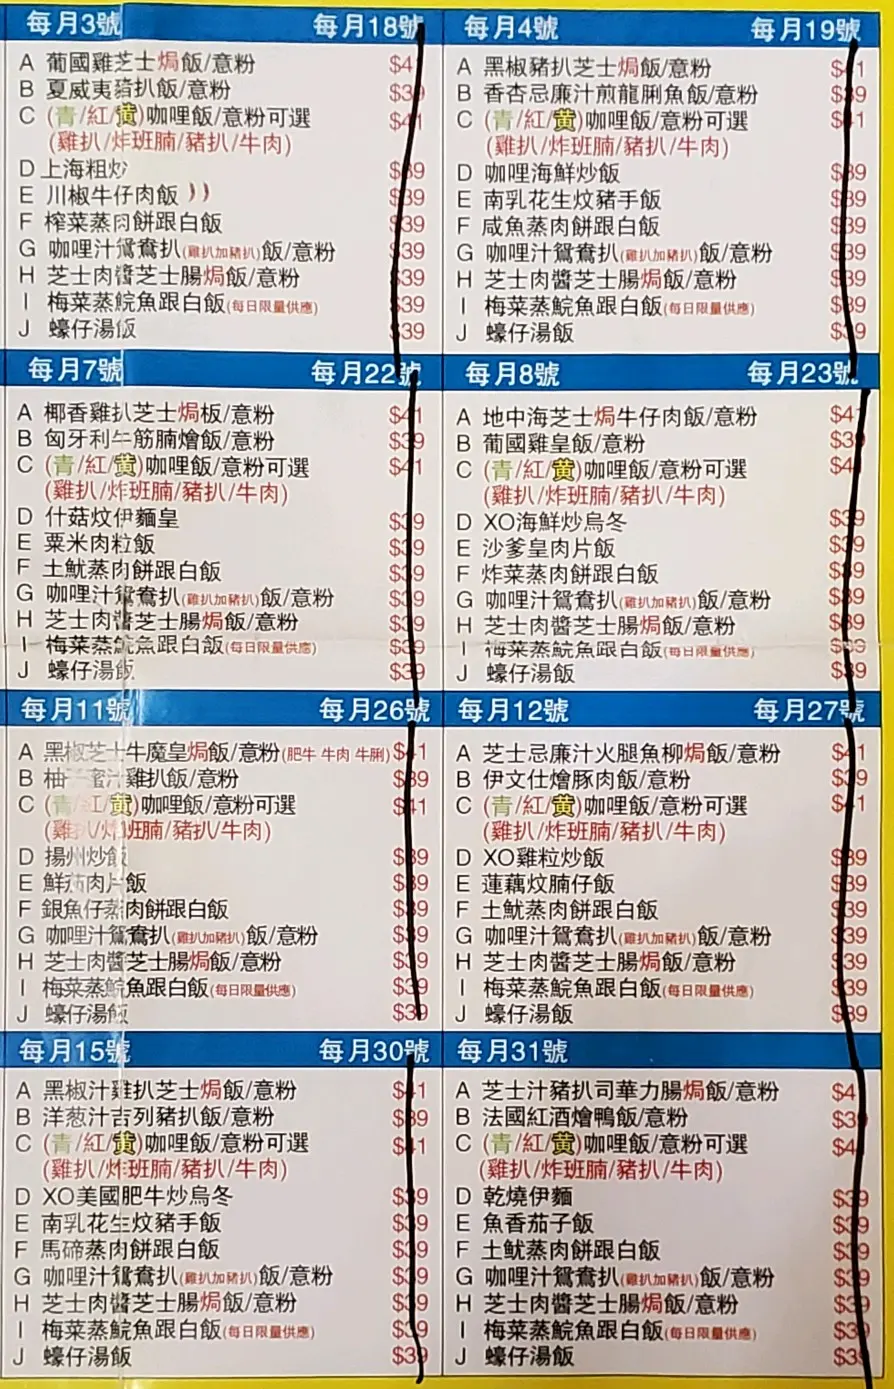 每月3號 每月18號
A 葡國雞芝士焗飯/意粉 $41
B 夏威夷豬扒飯/意粉 $39
C (青/紅/黄)咖哩飯/意粉可選 $41
(雞扒/炸班腩/豬扒/牛肉)
D 上海粗炒 $39
E 川椒牛仔肉飯 $39
F 榨菜蒸肉餅跟白飯 $39
G 咖哩汁鴛鴦扒(雞扒加豬扒)飯/意粉 $39
H 芝士肉醬芝士腸焗飯/意粉 $39
I 梅菜蒸鯇魚跟白飯(每日限量供應) $39
J 蠔仔湯飯 $39
每月4號 每月19號
A 黑椒豬扒芝士焗飯/意粉 $41
B 香杏忌廉汁煎龍脷魚飯/意粉 $39
C (青/紅/黄)咖哩飯/意粉可選 $41
(雞扒/炸班腩/豬扒/牛肉)
D 咖哩海鮮炒飯 $39
E 南乳花生炆豬手飯 $39
F 咸魚蒸肉餅跟白飯 $39
G 咖哩汁鴛鴦扒(雞扒加豬扒)飯/意粉 $39
H 芝士肉醬芝士腸焗飯/意粉 $39
I 梅菜蒸鯇魚跟白飯(每日限量供應) $39
J 蠔仔湯飯 $39
每月7號 每月22號
A 椰香雞扒芝士焗板/意粉 $41
B 匈牙利牛筋腩燴飯/意粉 $39
C (青/紅/黄)咖哩飯/意粉可選 $41
(雞扒/炸班腩/豬扒/牛肉)
D 什菇炆伊麵皇 $39
E 粟米肉粒飯 $39
F 土魷蒸肉餅跟白飯 $39
G 咖哩汁鴛鴦扒(雞扒加豬扒)飯/意粉 $39
H 芝士肉醬芝士腸焗飯/意粉 $39
I 梅菜蒸鯇魚跟白飯(每日限量供應) $39
J 蠔仔湯飯 $39
每月8號 每月23號
A 地中海芝士焗牛仔肉飯/意粉 $41
B 葡國雞皇飯/意粉 $39
C (青/紅/黄)咖哩飯/意粉可選 $41
(雞扒/炸班腩/豬扒/牛肉)
D XO海鮮炒烏冬 $39
E 沙爹皇肉片飯 $39
F 炸菜蒸肉餅跟白飯 $39
G 咖哩汁鴛鴦扒(雞扒加豬扒)飯/意粉 $39
H 芝士肉醬芝士腸焗飯/意粉 $39
I 梅菜蒸鯇魚跟白飯(每日限量供應) $39
J 蠔仔湯飯 $39
每月11號 每月26號
A 黑椒芝士牛魔皇焗飯/意粉(肥牛 牛肉 牛脷) $41
B 柚子蜜汁雞扒飯/意粉 $39
C (青/紅/黄)咖哩飯/意粉可選 $41
(雞扒/炸班腩/豬扒/牛肉)
D 揚州炒飯 $39
E 鮮茄肉片飯 $39
F 銀魚仔蒸肉餅跟白飯 $39
G 咖哩汁鴛鴦扒(雞扒加豬扒)飯/意粉 $39
H 芝士肉醬芝士腸焗飯/意粉 $39
I 梅菜蒸鯇魚跟白飯(每日限量供應) $39
J 蠔仔湯飯 $39
每月12號 每月27號
A 芝士忌廉汁火腿魚柳焗飯/意粉 $41
B 伊文仕燴豚肉飯/意粉 $39
C (青/紅/黄)咖哩飯/意粉可選 $41
(雞扒/炸班腩/豬扒/牛肉)
D XO雞粒炒飯 $39
E 蓮藕炆腩仔飯 $39
F 土魷蒸肉餅跟白飯 $39
G 咖哩汁鴛鴦扒(雞扒加豬扒)飯/意粉 $39
H 芝士肉醬芝士腸焗飯/意粉 $39
I 梅菜蒸鯇魚跟白飯(每日限量供應) $39
J 蠔仔湯飯 $39
每月15號 每月30號
A 黑椒汁雞扒芝士焗飯/意粉 $41
B 洋葱汁吉列豬扒飯/意粉 $39
C (青/紅/黄)咖哩飯/意粉可選 $41
(雞扒/炸班腩/豬扒/牛肉)
D XO美國肥牛炒烏冬 $39
E 南乳花生炆豬手飯 $39
F 馬碲蒸肉餅跟白飯 $39
G 咖哩汁鴛鴦扒(雞扒加豬扒)飯/意粉 $39
H 芝士肉醬芝士腸焗飯/意粉 $39
I 梅菜蒸鯇魚跟白飯(每日限量供應) $39
J 蠔仔湯飯 $39
每月31號
A 芝士汁豬扒司華力腸焗飯/意粉 $41
B 法國紅酒燴鴨飯/意粉 $39
C (青/紅/黄)咖哩飯/意粉可選 $41
(雞扒/炸班腩/豬扒/牛肉)
D 乾燒伊麵 $39
E 魚香茄子飯 $39
F 土魷蒸肉餅跟白飯 $39
G 咖哩汁鴛鴦扒(雞扒加豬扒)飯/意粉 $39
H 芝士肉醬芝士腸焗飯/意粉 $39
I 梅菜蒸鯇魚跟白飯(每日限量供應) $39
J 蠔仔湯飯 $39